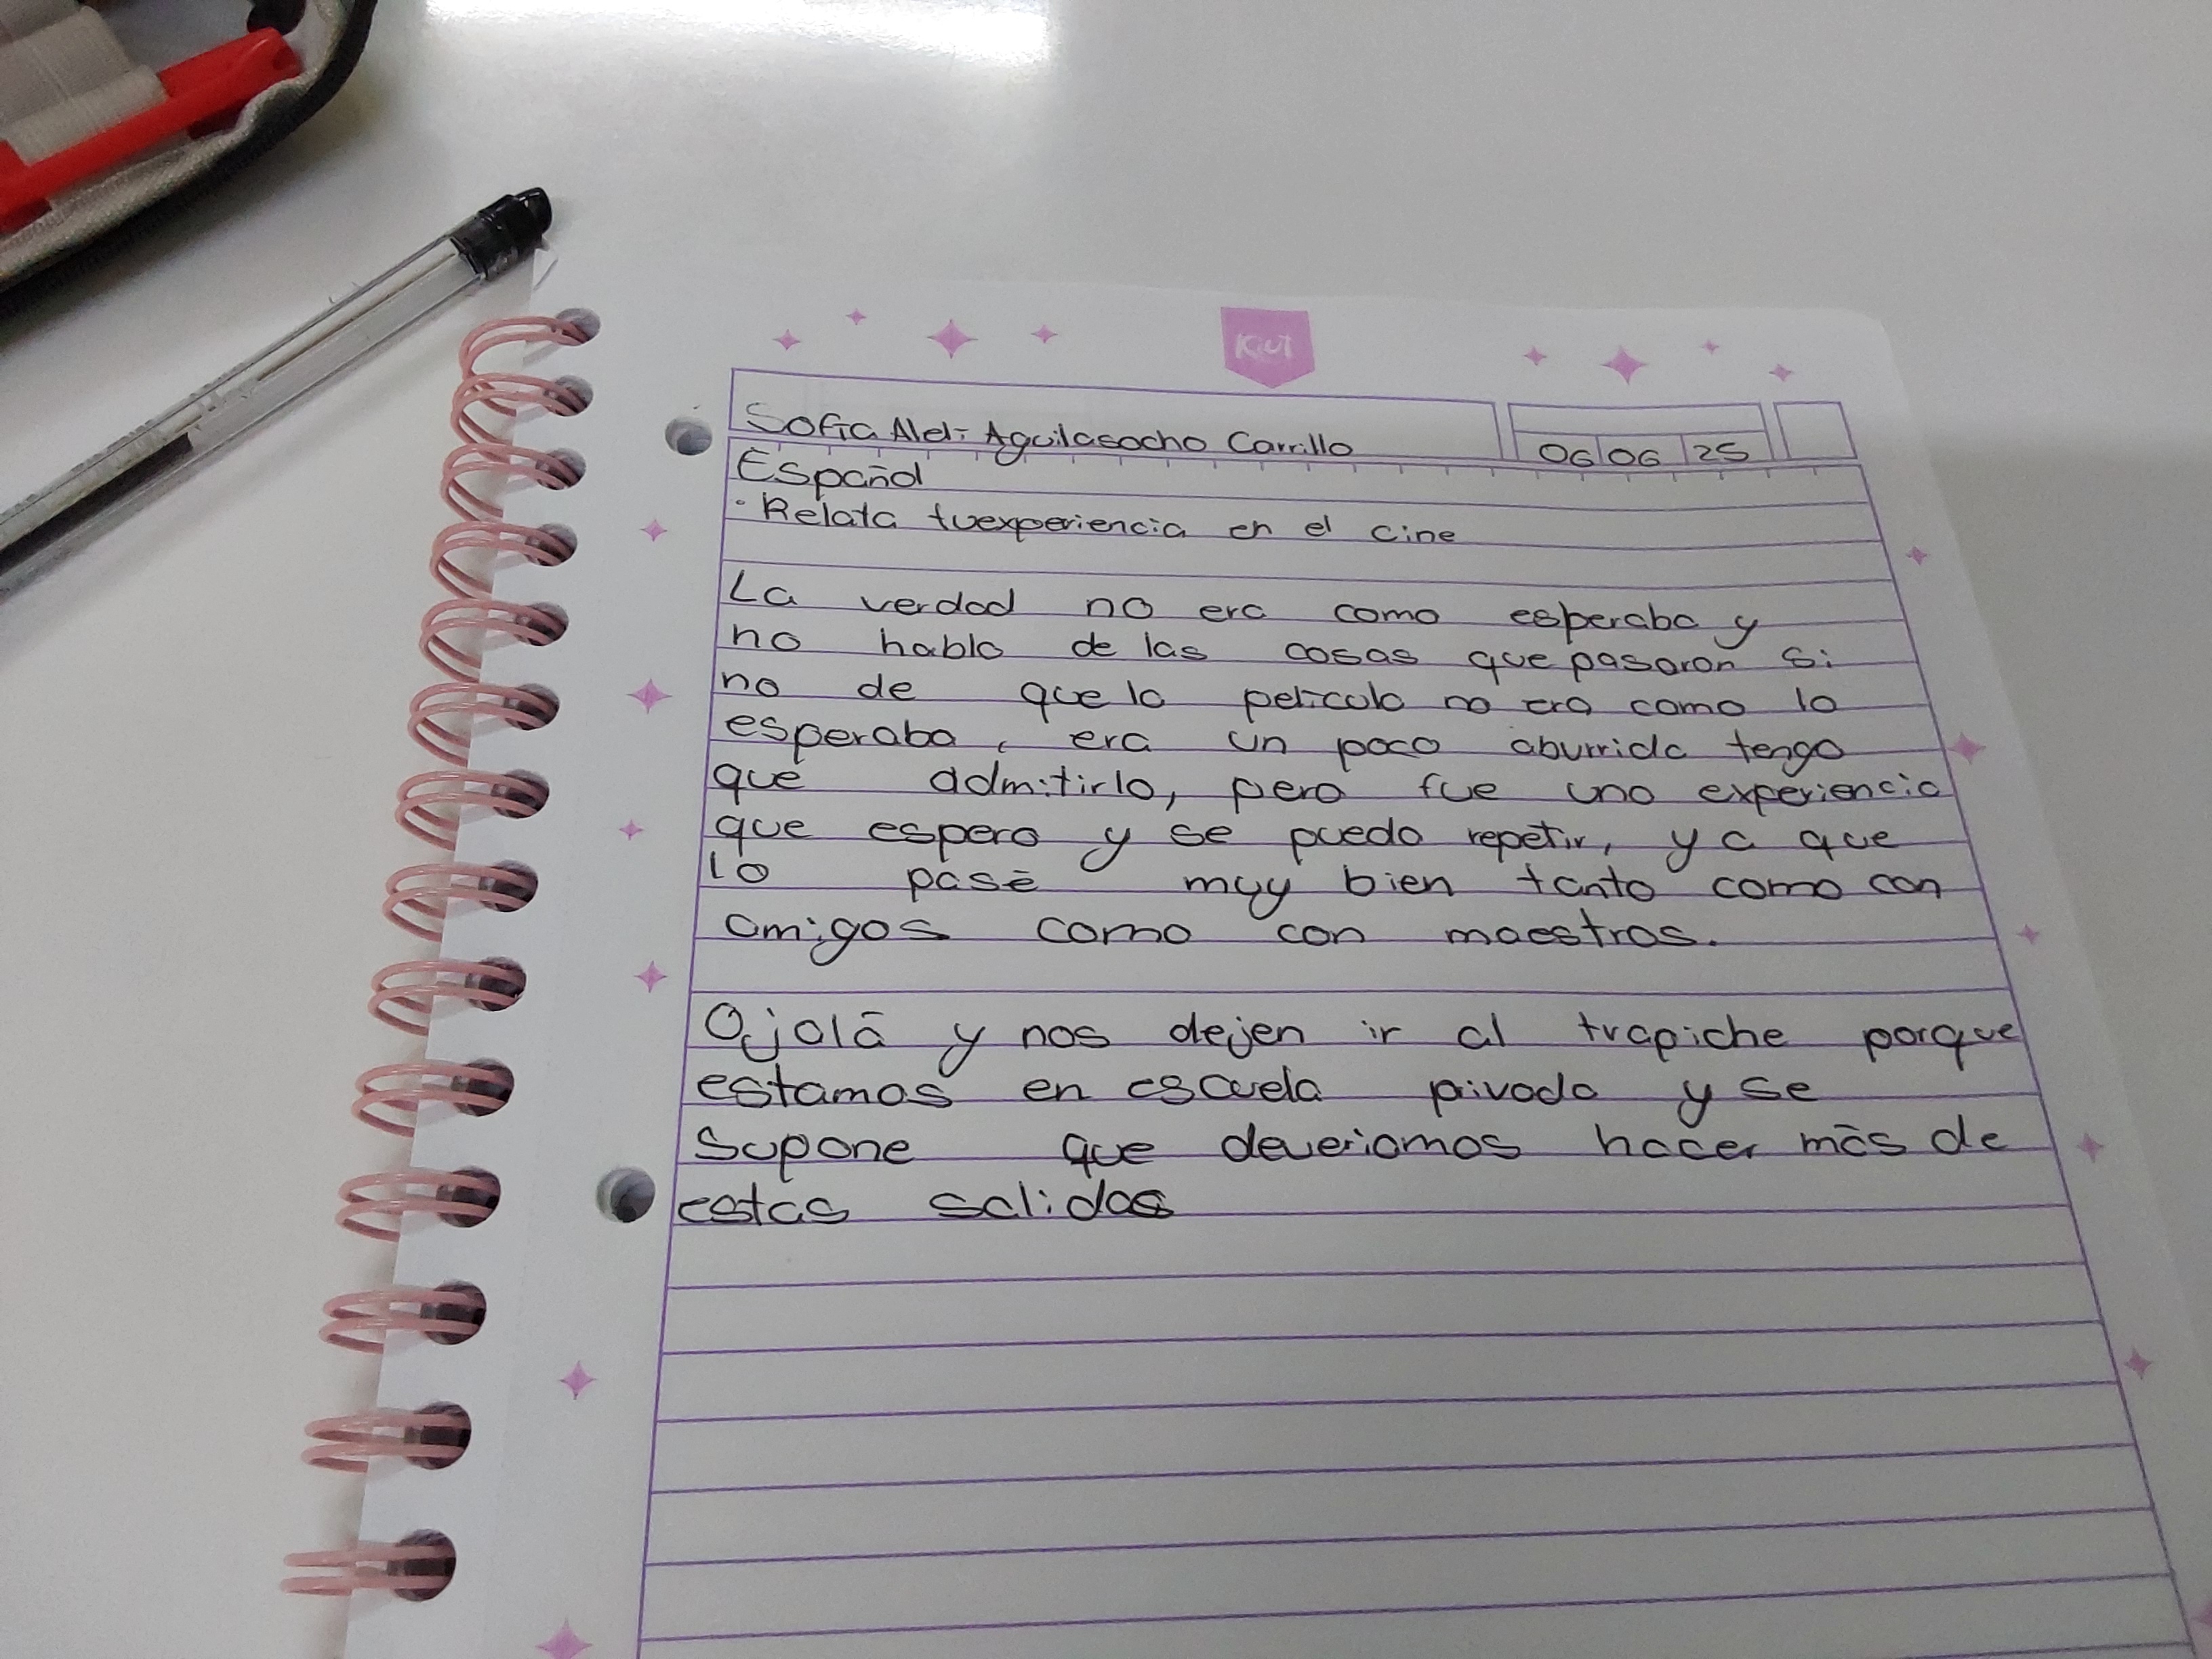 Kiut
Sofía Aleli Aguilasocho Carrillo
06 06 25
Español
· Relata tuexperiencia en el cine
La verdad no era como esperaba y
no hablo de las cosas que pasaron si
no de que la película no era como lo
esperaba, era un poco aburrida tengo
que admitirlo, pero fue una experiencia
que espero y se pueda repetir, ya que
lo pasé muy bien tanto como con
amigos como con maestros.
Ojalá y nos dejen ir al trapiche porque
estamos en escuela privada y se
supone que deveriamos hacer más de
estas salidas